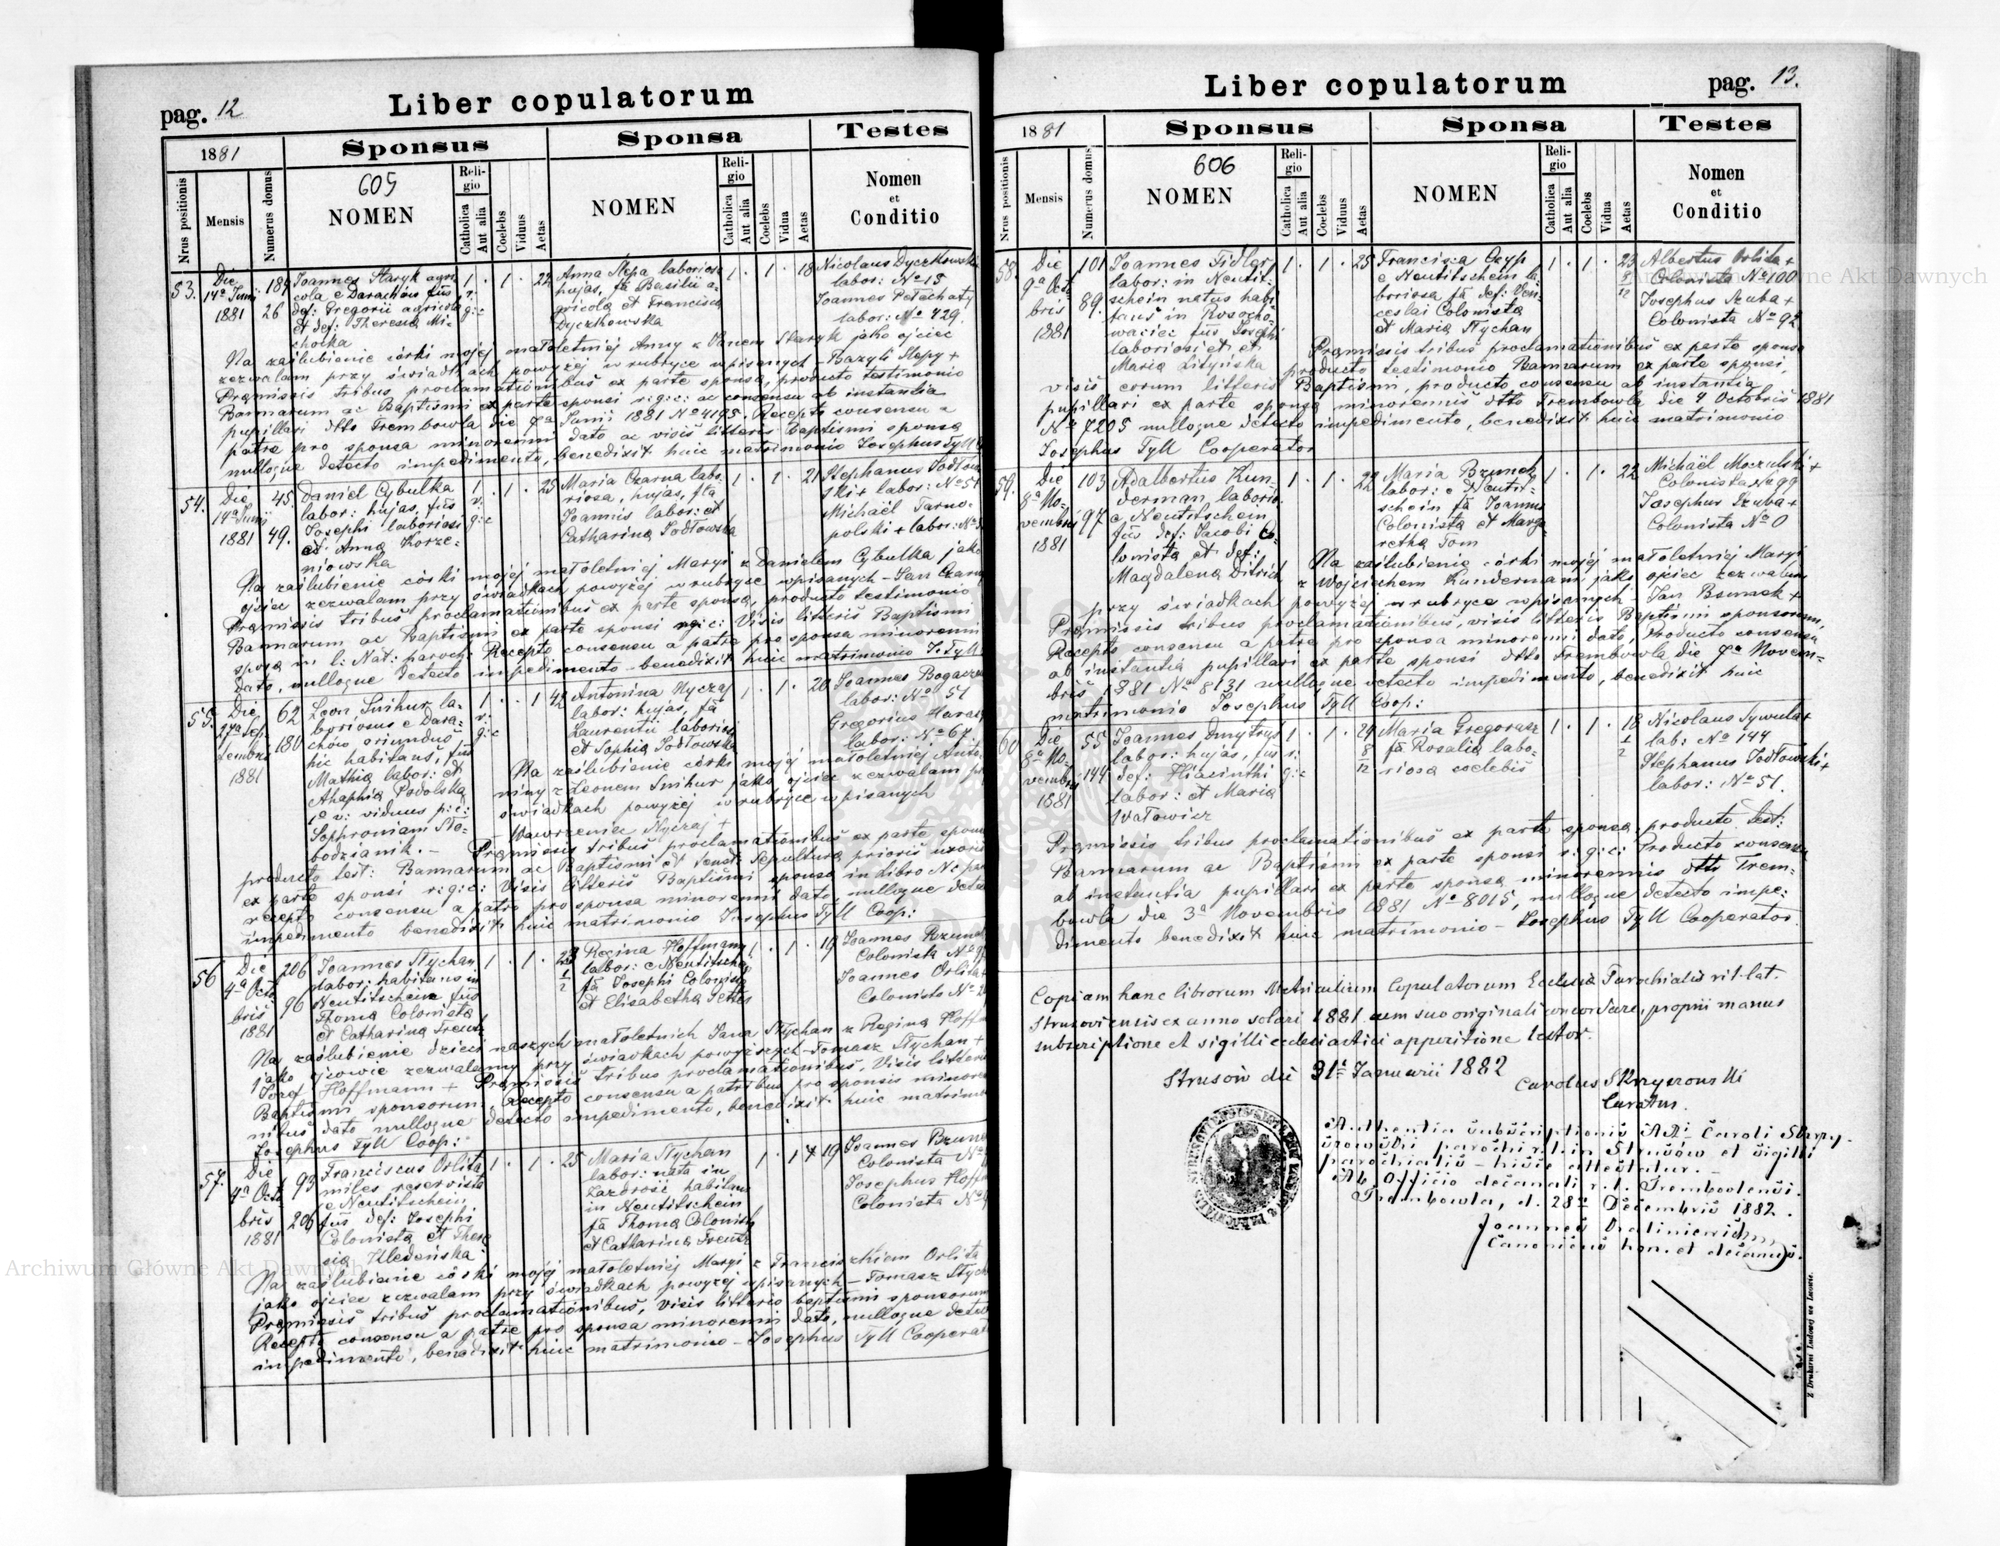 pag. 12
Liber copulatorum
1881
Sponsus
Sponsa
Testes
Nrus positionis
Mensis
Numerus domus
605
NOMEN
Religio
Catholica
Aut alia
Coelebs
Viduus
Aetas
NOMEN
Religio
Catholica
Aut alia
Coelebs
Vidua
Aetas
Nomen
et
Conditio
53.
Die
14a Junii
1881
184
26
Joannes Staryk agri-
cola e Darachów fus
def: Gregorii agricolae
et def: Theresia Mi-
chocka
1 r: g:c
1
22
Anna Slepa laboriosa
hujas, fa Basilii a-
gricola et Francisca
Dyczkowska
1 . 1 . 18
Nicolaus Dyczkowski
labor: No 15
Joannes Petachaty
labor: No 429
Na zaślubienie córki mojej małoletniej Anny z Janem Staryk jako ojciec
zezwalam przy świadkach powyżej w rubryce wpisanych – Bazyli Slepy +
Praemissis tribus proclamationibus ex parte sponsa, producto testimonio
Bannarum ac Baptismi ex parte sponsi r:g:c: ac consensu ab instantia
pupillari dtto Trembowla die 7a Junii 1881 No 4195. Recepto consensu a
patre pro sponsa minorenni dato ac visis litteris Baptismi sponsa
nulloque detecto impedimento, benedixit huic matrimonio Josephus Tyll
54.
Die
14a Junii
1881
45
49.
Daniel Cybulka
labor: hujas, fus
Josephi laboriosi
et Anna Korze-
niowska
1 r: g:c
1 . 25
Maria Czarna labo-
riosa, hujas, fa
Joannis labor: et
Catharina Sodłowska
1 . 1 . 21
Stephanus Sodłow-
ski + labor: No 51
Michaël Tarno-
polski + labor: No
Na zaślubienie córki mojej małoletniej Maryi z Danielem Cybulka jako
ojciec zezwalam przy świadkach powyżej w rubryce wpisanych – Jan Czarny
Praemissis tribus proclamationibus ex parte sponsa, producto testimonio
Bannarum ac Baptismi ex parte sponsi r:g:c: Visis litteris Baptismi
sponsa in l: Nat: paroch: Recepto consensu a patre pro sponsa minorenni
dato, nulloque detecto impedimento – benedixit huic matrimonio J. Tyll
55.
Die
Sep-
tembris
1881
62
180
Leon Snihur la-
boriosus e Dara-
chów oriundus
hic habitans, fus
Mathia labor: et
Ahaphia Podolska
1o v: viduus p: c:
Sophroniam Sło-
bodzianik. –
1 r: g:c
1 42
Antonina Nyczaj
labor: hujas, fa
Laurentii laboriosi
et Sophia Sodłowska
1 . 1 . 20
Joannes Bogacz
labor: No 51
Gregorius Haras
labor: No 67
Na zaślubienie córki mojej małoletniej Anto-
niny z Leonem Snihur jako ojciec zezwalam
świadkach powyżej w rubryce wpisanych
Wawrzeniec Nyczaj +
Praemissis tribus proclamationibus ex parte sponsa
producto test: Bannarum ac Baptismi et test: Sepultura prioris uxoris
ex parte sponsi r:g:c: Visis litteris Baptismi sponsa in Libro
recepto consensu a patre pro sponsa minorenni dato, nulloque detecto
impedimento benedixit huic matrimonio Josephus Tyll Coop:
56
Die
4a Octo
bris
1881
206
96
Joannes Stychan
labor: habitans in
Neutitschein fus
Thoma Colonista
et Catharina Frentz
1 . 1 . 23 1/2
Regina Hoffmann
labor: e Neutitschein
fa Josephi Colonista
et Elisabetha
1 . 1 . 19
Joannes Bzumek
Colonista No
Joannes Orlita +
Colonista No
Na zaślubienie dzieci naszych małoletnich Jana Stychan z Reginą Hoffmann
jako ojcowie zezwalamy przy świadkach powyższych – Tomasz Stychan +
Josef Hoffmann + Praemissis tribus proclamationibus, Visis litteris
Baptismi sponsorum, Recepto consensu a patribus pro sponsis minoren-
nibus dato nulloque detecto impedimento, benedixit huic matrimonio
Josephus Tyll Coop:
57.
Die
4a Octo
bris
1881
93
206
Franciscus Orlita
miles reservista
e Neutitschein
fus def: Josephi
Colonista et There
sia Uledeńska
1 . 1 . 25
Maria Stychan
labor: nata in
Zazdrość habitans
in Neutitschein
fa Thoma Colonista
et Catharina Frentz
1 . 1 19
Joannes Bzumek
Colonista No
Josephus Hoffmann
Colonista No
Na zaślubienie córki mojej małoletniej Maryi z Franciszkiem Orlita
jako ojciec zezwalam przy świadkach powyżej wpisanych – Tomasz Stychan
Praemissis tribus proclamationibus, visis litteris baptismi sponsorum
Recepto consensu a patre pro sponsa minorenni dato, nulloque detecto
impedimento, benedixit huic matrimonio – Josephus Tyll Cooperator
Liber copulatorum
pag. 13.
1881
Sponsus
Sponsa
Testes
Nrus positionis
Mensis
Numerus domus
606
NOMEN
Religio
Catholica
Aut alia
Coelebs
Viduus
Aetas
NOMEN
Religio
Catholica
Aut alia
Coelebs
Vidua
Aetas
Nomen
et
Conditio
58.
Die
9a Octo
bris
1881
101
89.
Joannes Fidler
labor: in Neutit-
schein natus habi-
tans in Rosocho-
waciec fus Josephi
laboriosi et
Maria Lityńska
1 . 1 . 25
Francisca Czyp
e Neutitschein la-
boriosa fa def: Ven-
ceslai Colonista
et Maria Stychan
1 . 1 . 23 8/12
Albertus Orlita +
Colonista No 100
Josephus Szuba +
Colonista No 92
Praemissis tribus proclamationibus ex parte sponsa
producto testimonio Bannarum ex parte sponsi,
visis eorum litteris Baptismi, producto consensu ab instantia
pupillari ex parte sponsa minorennis dtto Trembowla die 4 Octobris 1881
No 7205 nulloque detecto impedimento, benedixit huic matrimonio
Josephus Tyll Cooperator
59.
Die
8a No-
vembris
1881
103
97
Adalbertus Kun-
derman, laborio-
e Neutitschein
fus def: Jacobi Co-
lonista et def:
Magdalena Ditrich
1 . 1 . 22
Maria Bzumek
labor: e Neutit-
schein fa Joannis
Colonista et Marga-
retha Tom
1 . 1 . 22
Michaël Moczulski +
Colonista No 99
Josephus Szuba +
Colonista No 0
Na zaślubienie córki mojej małoletniej Maryi
z Wojciechem Kunderman jako ojciec zezwalam
przy świadkach powyżej w rubryce wpisanych Jan Bzumek +
Praemissis tribus proclamationibus, visis litteris Baptismi sponsorum,
Recepto consensu a patre pro sponsa minorenni dato, Producto consensu
ab instantia pupillari ex parte sponsi dtto Trembowla die 7a Novem-
bris 1881 No 8131 nulloque detecto impedimento, benedixit huic
matrimonio Josephus Tyll Coop:
60
Die
8a No-
vembris
1881
55
144
Joannes Dmytryk
labor: hujas, fus
def: Hiacinthi
labor: et Maria
Wałowicz
1 r: g:c
1 . 29 8/12
Maria Gregorasz
fa Rosalia labo-
riosa coelebis
1 . 1 . 18 1/2
Nicolaus Sywula +
lab: No 144
Stephanus Sodłowski +
labor: No 51.
Praemissis tribus proclamationibus ex parte sponsa producto test:
Bannarum ac Baptismi ex parte sponsi r:g:c: Producto consensu
ab instantia pupillari ex parte sponsa minorennis dtto Trem-
bowla die 3a Novembris 1881 No 8015, nulloque detecto impe-
dimento benedixit huic matrimonio – Josephus Tyll Cooperator
Copiam hanc librorum Metricalium Copulatorum Ecclesia Parochialis rit. lat.
Strusoviensis ex anno solari 1881 cum suo originali concordare, proprii manus
subscriptione et sigilli ecclesiastici apposition testor.
Strusów die 31a Januarii 1882
Carolus Skrzyszowski
Curatus.
Authentia subscriptionis AR. Caroli Skrzy-
szowski parochi r. l. in Strusów et sigilli
parochialis – hisce attestatur. –
Ab Officio decanali r. l. Trembovlensi.
Trembowla, d. 28a Decembris 1882.
Joannes Draliniewicz
Canonicus hon. et decanus.
Z Drukarni Ludowej we Lwowie.
Archiwum Główne Akt Dawnych
Archiwum Główne Akt Dawnych